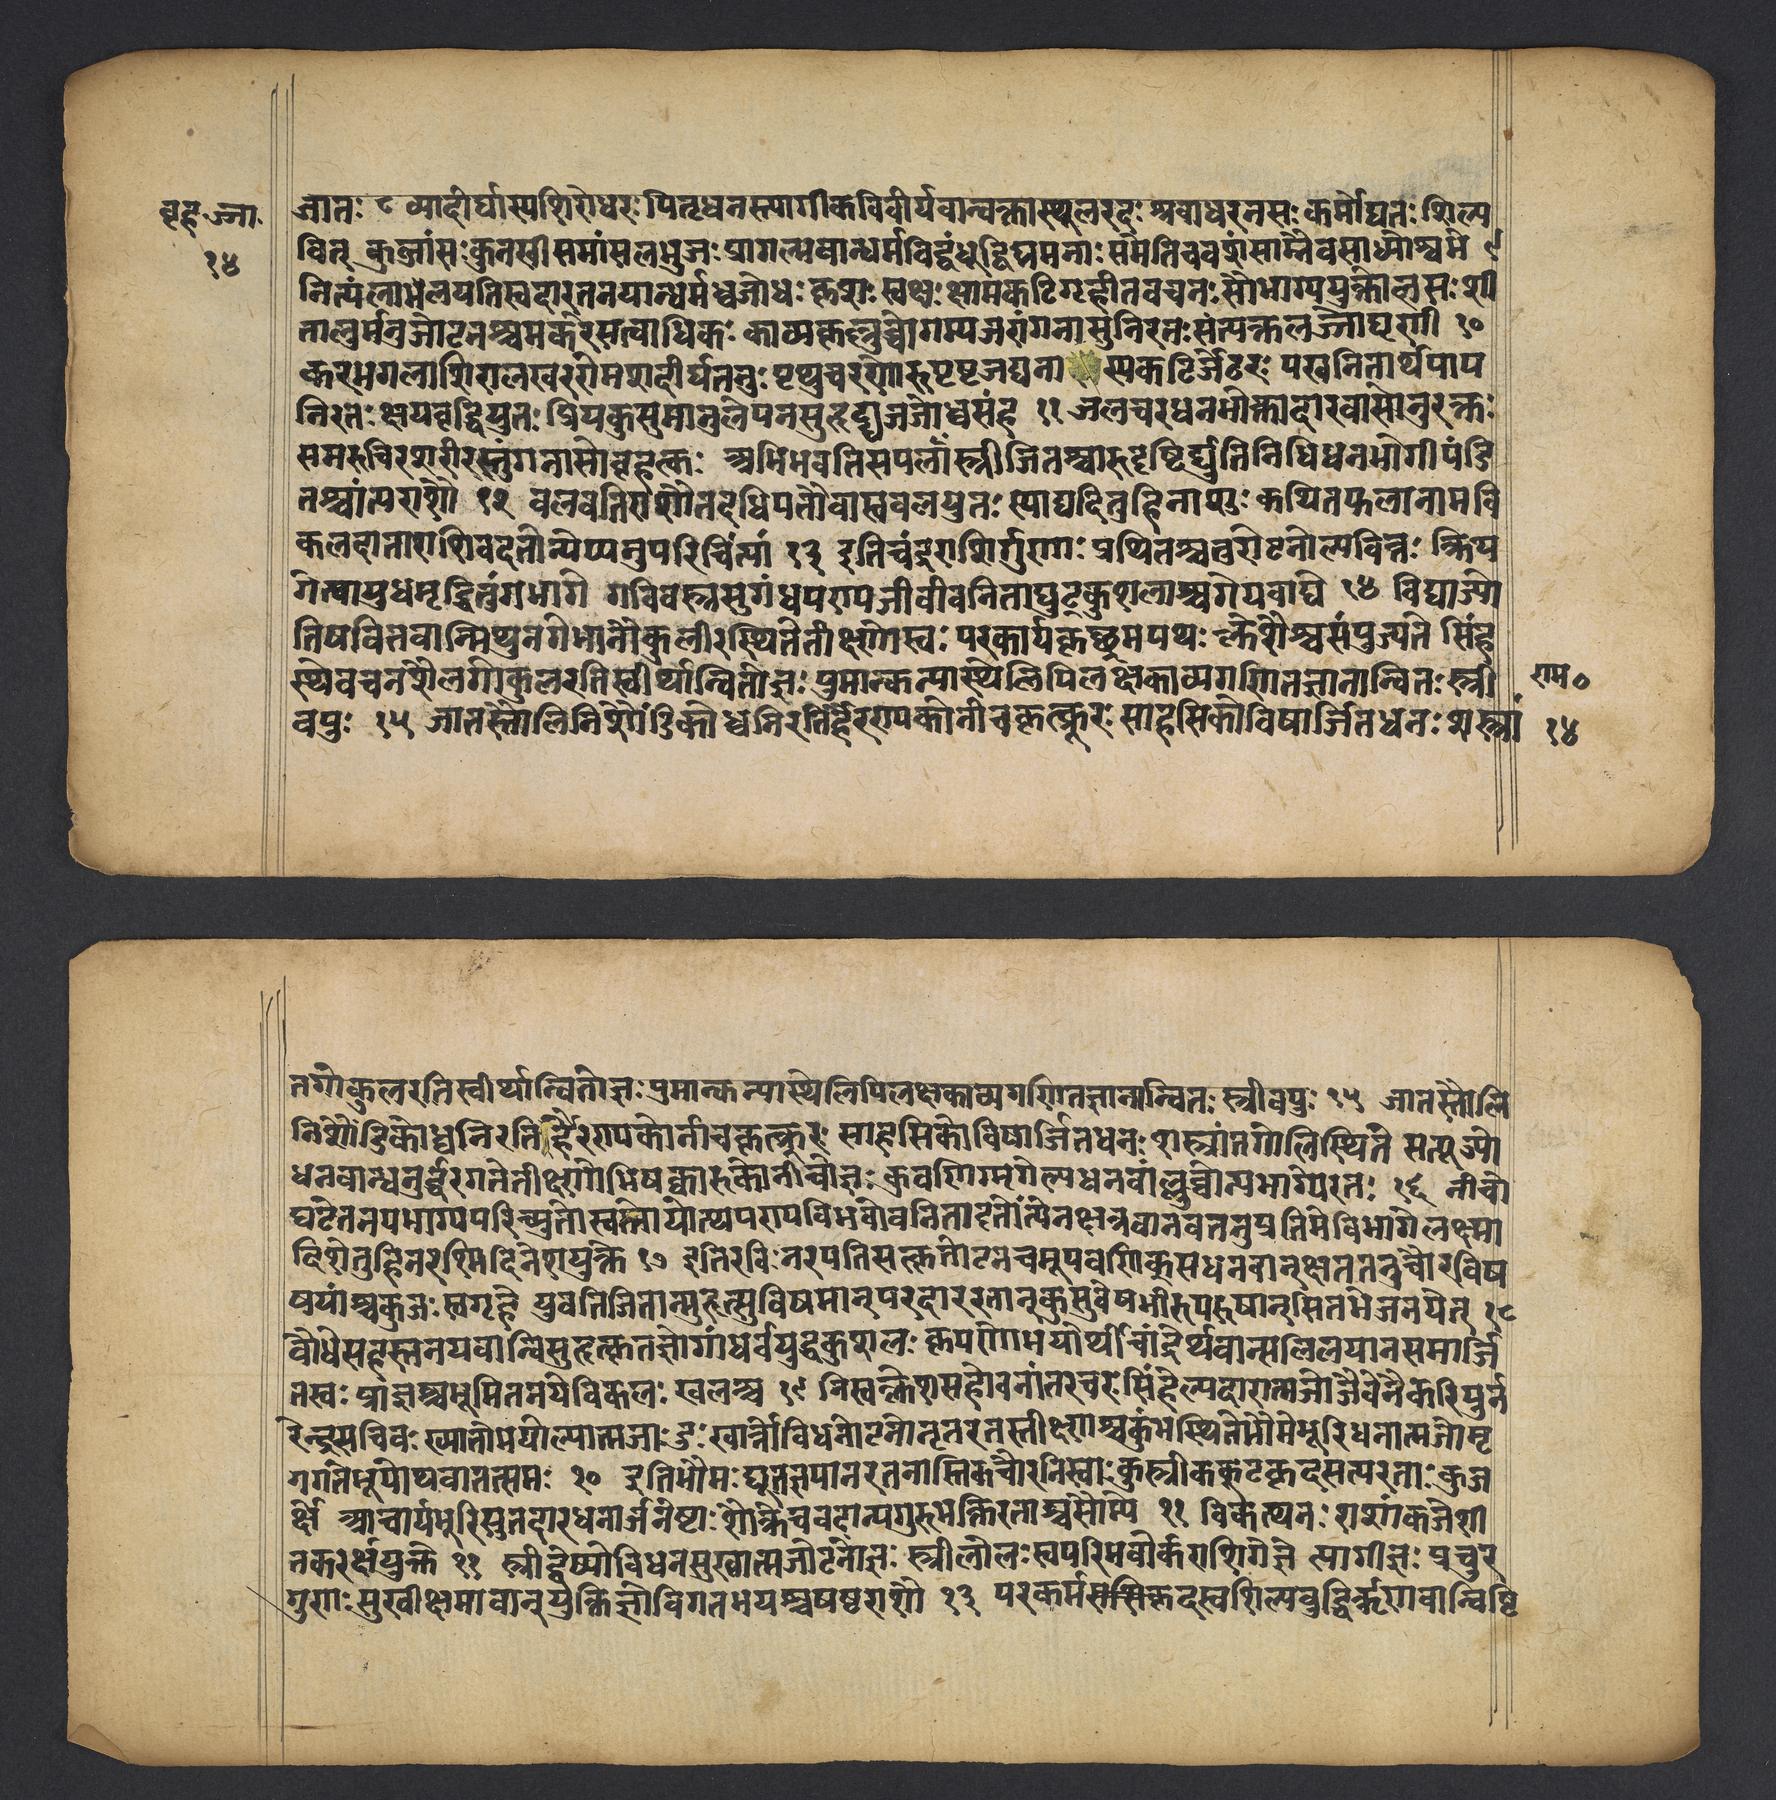 बृहज्जा.
१४
जातः ८ व्यादीर्घास्यशिरोधरः पितृधनस्त्यागीकविवीर्यवान्वक्तास्थूलरदः श्रवाधरनसः कर्मोद्यतः शिल्प
वित् कुब्जांसः कुनखीसमांसलभुजः प्रागल्भवान्धर्मविद्बंधुद्विट्नमनाः समेतिचवशंसाम्नैवसाध्योश्वमे ९
नित्यंलाभेलयतिस्वदारतनयान्धर्मध्वजोधः कृशः स्वक्षः क्षामकटिर्गृहीतवचनः सौभाग्ययुक्तोलसः शी
तालुर्मनुजोटनश्चमकरेसत्वाधिकः काव्यकृल्लुब्धोगम्यजरांगनासुनिरतः संत्यक्तलज्जोघृणी १०
करभगलःशिरालखररोमशदीर्घतनुः पृथुचरणोरुपृष्टजघना स्यकटिर्जठरः परवनितार्थपाप
निरतः क्षयवृद्धियुतः प्रियकुसुमानुलेपनसुहृद्घटजजोध्वसंह ११ जलचरधनभोक्तादारवासोनुरक्तः
समरुचिरशरीरस्तुंगनासोबृहत्कः अभिभवतिसपत्नांस्त्रीजितश्चारुदृष्टिर्द्युतिनिधिधनभोगीपंडि
तश्चांत्यराशौ १२ बलवतिराशौतदधिपतौवास्वबलयुतः स्याद्यदितुहिनाशुः कथितफलानामवि
कलदाताशशिवदतोन्येप्यनुपरिचिंत्या १३ इतिचंद्रराशिर्गुणाः प्रथितश्चतुरोटनोल्पवित्तः क्रिय
गेत्वायुधमृद्वितुंगभागे गविवस्त्रसुगंधपण्यजीवीवनिताघुट्कुशलाश्चगेयवाद्ये १४ विद्याज्यो
तिषवित्तवान्मिथुनगेभानौकुलीरस्थितेतीक्ष्णोस्वः परकार्यकृच्छ्रमपथः क्लेशैश्चसंयुज्यते सिंह
स्थेवचनशैलगोकुलरतिस्वीर्थान्वितोज्ञः पुमान्कन्यास्थेलिपिलक्षकाव्यगणितज्ञानान्वितः स्त्री
वपुः १५ जातस्तोलिनिशौंडिकोध्वनिरतोहैरण्यकोनीचकृत्क्रूरः साहसिकोविषार्जितधनः शस्त्रां
राम०
१४
तगोकुलरतिस्वीर्थान्वितोज्ञः पुमान्कन्यास्थेलिपिलक्षकाव्यगणितज्ञानान्वितः स्त्रीवपुः १५ जातस्तौलि
निशौंडिकोध्वनिरतिर्हैरण्यकोनीचकृत्क्रूरः साहसिकोविषार्जितधनः शस्त्रांतगोलिस्थिते सत्पूज्यो
धनवान्धनुर्द्धरगतेतीक्ष्णोभिषक्कारुकोनीचोज्ञः कुवणिग्मृगेल्पधनवांल्लुब्धोन्यभाग्येरतः १६ नीचो
घटेतनयभाग्यपरिच्युतोस्वस्तोयोत्थपण्यविभवोवनितादृतोंत्येनक्षत्रवानवतनुप्रतिमेविभागेलक्ष्मा
दिशेतुहिनरश्मिदिनेशयुक्ते १७ इतिरविः नरपतिसत्कृतोटनचमूपवणिक्सधनवान्क्षततनुचौरविष
षयांश्चकुजः स्वगृहे युवतिजितान्सुहृत्सुविषमान्परदाररतान्कुसुवेषभीरुपरुषान्सितभेजनयेत् १८
बौधेसहस्तनयवान्विसुहृत्कृतज्ञोगांधर्वयुद्धकुशलः कृपणोभयोर्थीचांद्रेर्थवान्सलिलयानसमार्जि
तस्वः प्राज्ञश्चभूमितनयेविकलः खलश्च १९ निस्वक्लेशसहोवनांतरचरः सिंहेल्पदारात्मजोजैवेनैकरिपुर्न
रेन्द्रसचिवः ख्यातोभयोल्पात्मजाः दुःखार्त्तोविधनोटनोनृतरतस्तीक्ष्णश्चकुंभस्थितेभौमेभूरिधनात्मजोमृ
गगतेभूपोथवातत्समः २० इतिभौमः द्यूतज्ञपानरतनास्तिकचौरनिस्वाः कुस्त्रीककूटकृदसत्यरताः कुज
र्क्षे आचार्यभूरिसुतदारधनार्जनेष्टाः शौक्रेचवदान्यगुरुभक्तिरताश्चसौम्ये २१ विकत्थनः शशांकजेशी
तकरर्क्षयुक्ते २२ स्त्रीद्वेष्योविधनसुखात्मजोटनोज्ञः स्त्रीलोलःस्वपरिभवोर्कराशिगेज्ञे त्यागीज्ञः प्रचुर
गुणः सुखीक्षमावान्युक्तिज्ञोविगतभयश्चषष्ठराशौ २३ परकर्म कृदस्वशिल्पबुद्धिर्ऋणवान्विष्टि